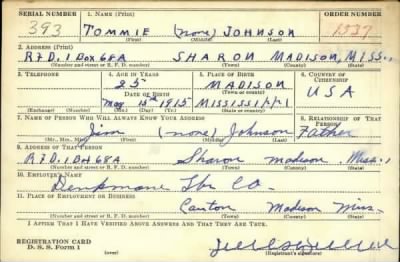 SERIAL NUMBER 1. NAME (Print) ORDER NUMBER
393 TOMMIE (none) JOHNSON 1537
(First) (Middle) (Last)
2. ADDRESS (Print)
RFD. 1 Box 68A SHARON MADISON, MISS.
(Number and street or R. F. D. number) (Town) (County) (State)
3. TELEPHONE 4. AGE IN YEARS 5. PLACE OF BIRTH 6. COUNTRY OF CITIZENSHIP
25 MADISON
DATE OF BIRTH (Town or county) USA
May 15th 1915 MISSISSIPPI
(Exchange) (Number) (Mo.) (Day) (Yr.) (State or country)
7. NAME OF PERSON WHO WILL ALWAYS KNOW YOUR ADDRESS 8. RELATIONSHIP OF THAT PERSON
Jim (none) Johnson Father
(Mr., Mrs., Miss) (First) (Middle) (Last)
9. ADDRESS OF THAT PERSON
RFD. 1 BOX 68A Sharon madison, Miss.
(Number and street or R. F. D. number) (Town) (County) (State)
10. EMPLOYER'S NAME
Lbr Co.
11. PLACE OF EMPLOYMENT OR BUSINESS
Canton Madison Miss.
(Number and street or R. F. D. number) (Town) (County) (State)
I AFFIRM THAT I HAVE VERIFIED ABOVE ANSWERS AND THAT THEY ARE TRUE.
REGISTRATION CARD
D. S. S. Form 1 (Registrant's signature)